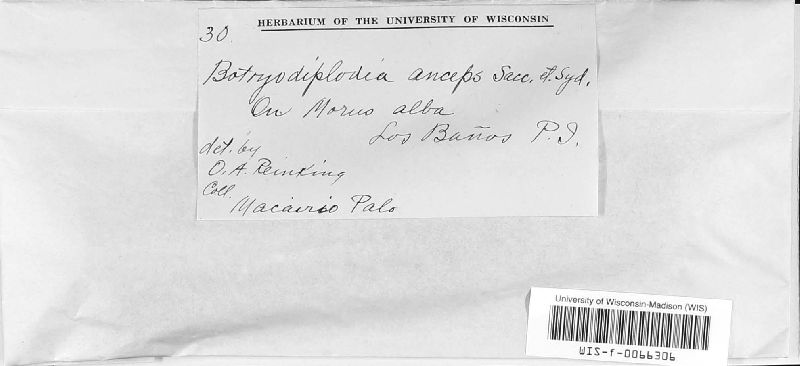 HERBARIUM OF THE UNIVERSITY OF WISCONSIN
30.
Botryodiplodia anceps Sacc. et. Syd.
On Morus alba
Los Baños P.I.
det. by
O. A. Reinking
Coll.
Macario Palo
University of Wisconsin-Madison (WIS)
WIS-f-0066306